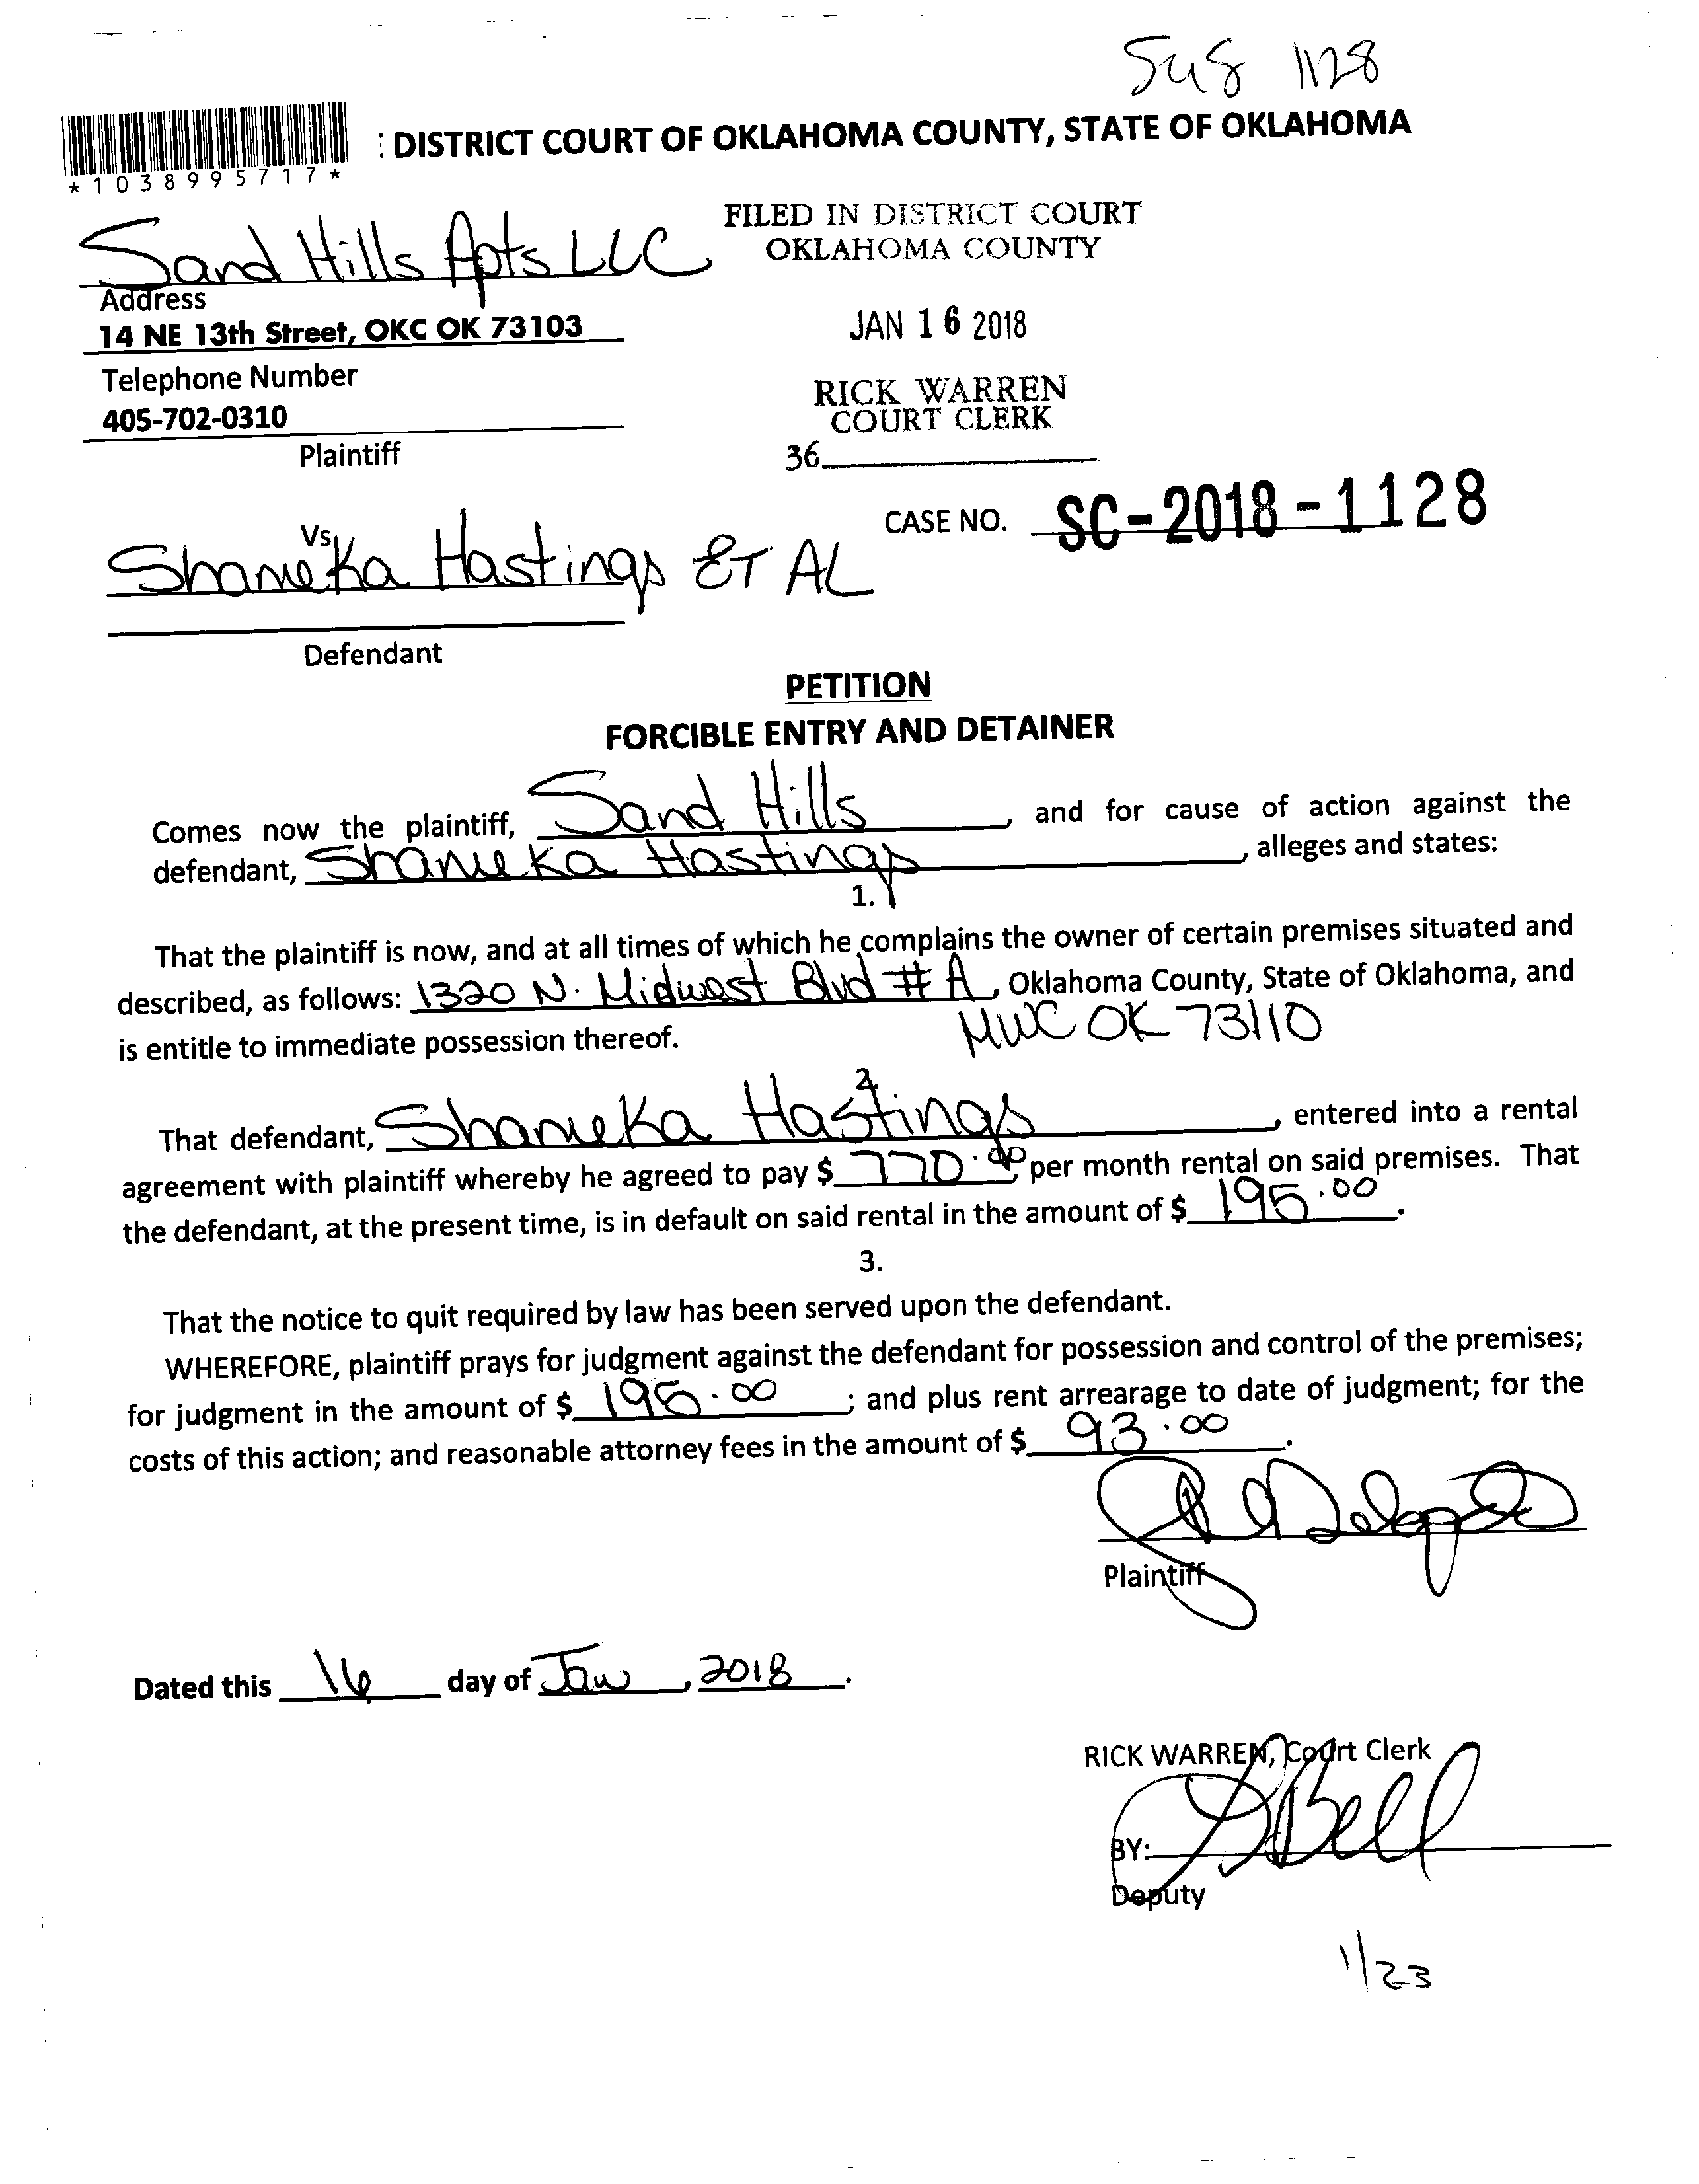 1128
: DISTRICT COURT OF OKLAHOMA COUNTY, STATE OF OKLAHOMA
*1038995717*
FILED IN DISTRICT COURT
OKLAHOMA COUNTY
Sand Hills Apts LLC
Address
14 NE 13th Street, OKC OK 73103
JAN 16 2018
Telephone Number
405-702-0310
RICK WARREN
COURT CLERK
Plaintiff
36
Vs
CASE NO. SC-2018-1128
Shameka Hastings ET AL
Defendant
PETITION
FORCIBLE ENTRY AND DETAINER
Comes now the plaintiff, Sand Hills, and for cause of action against the
defendant, Shameka Hastings, alleges and states:
1.
That the plaintiff is now, and at all times of which he complains the owner of certain premises situated and
described, as follows: 1320 N. Midwest Blvd # A, Oklahoma County, State of Oklahoma, and
MWC OK 73110
is entitle to immediate possession thereof.
2.
That defendant, Shameka Hastings, entered into a rental
agreement with plaintiff whereby he agreed to pay $ 770.00 per month rental on said premises. That
the defendant, at the present time, is in default on said rental in the amount of $ 195.00.
3.
That the notice to quit required by law has been served upon the defendant.
WHEREFORE, plaintiff prays for judgment against the defendant for possession and control of the premises;
for judgment in the amount of $ 195.00; and plus rent arrearage to date of judgment; for the
costs of this action; and reasonable attorney fees in the amount of $ 93.00.
Plaintiff
Dated this 16 day of Jan, 2018.
RICK WARREN, Court Clerk
BY: Bell
Deputy
1/23